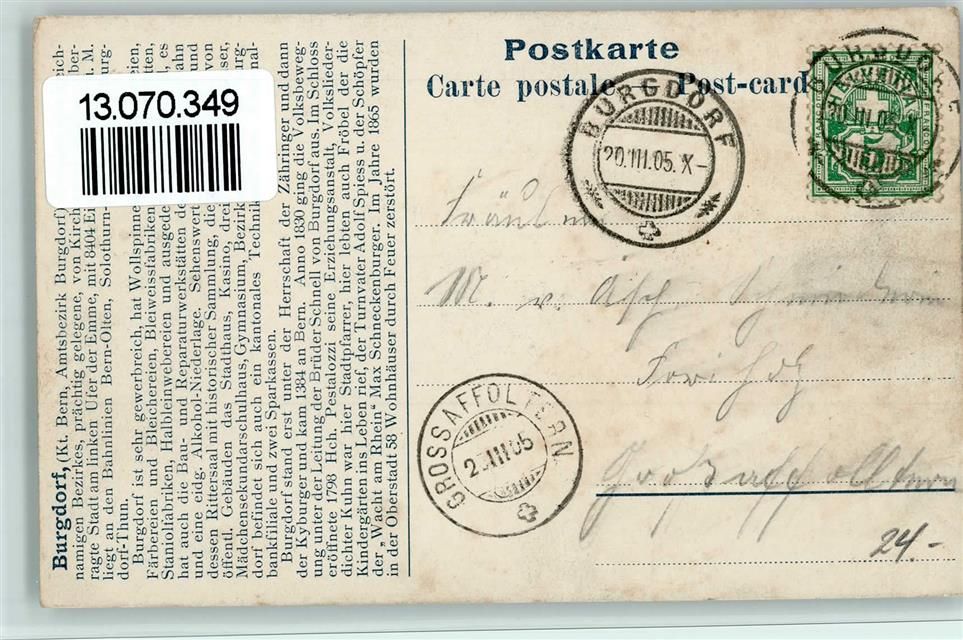 13.070.349
Postkarte
Carte postale Post-card
BURGDORF
20.III.05. X-
BURGDORF
20.III.05.
HELVETIA
FRANCO
5
Fräulein
M. v.
Grossaffoltern
GROSSAFFOLTERN
2 .III 05
24.-
Burgdorf, (Kt. Bern, Amtsbezirk Burgdorf)
namigen Bezirkes, prächtig gelegene, von Kirch
ragte Stadt am linken Ufer der Emme, mit 8404 Ei M.
liegt an den Bahnlinien Bern-Olten, Solothurn-
dorf-Thun.
Burgdorf ist sehr gewerbreich, hat Wollspinne
Färbereien und Bleichereien, Bleiweissfabriken
Staniolfabriken, Halbleinweberei und ausgede es
hat auch die Bau- und Reparaturwerkstätten de
und eine eidg. Alkohol-Niederlage. Sehenswert
dessen Rittersaal mit historischer Sammlung, die von
öffentl. Gebäuden das Stadthaus, Kasino, drei
Mädchensekundarschulhaus, Gymnasium, Bezirk
dorf befindet sich auch ein kantonales Technik
bankfiliale und zwei Sparkassen.
Burgdorf stand erst unter der Herrschaft der Zähringer und dann
der Kyburger und kam 1384 an Bern. Anno 1830 ging die Volksbeweg-
ung unter der Leitung der Brüder Schnell von Burgdorf aus. Im Schloss
eröffnete 1798 Hch. Pestalozzi seine Erziehungsanstalt, Volkslieder-
dichter Kuhn war hier Stadtpfarrer, hier lebten auch Fröbel der die
Kindergärten ins Leben rief, der Turnvater Adolf Spiess u. der Schöpfer
der „Wacht am Rhein“ Max Schneckenburger. Im Jahre 1865 wurden
in der Oberstadt 58 Wohnhäuser durch Feuer zerstört.